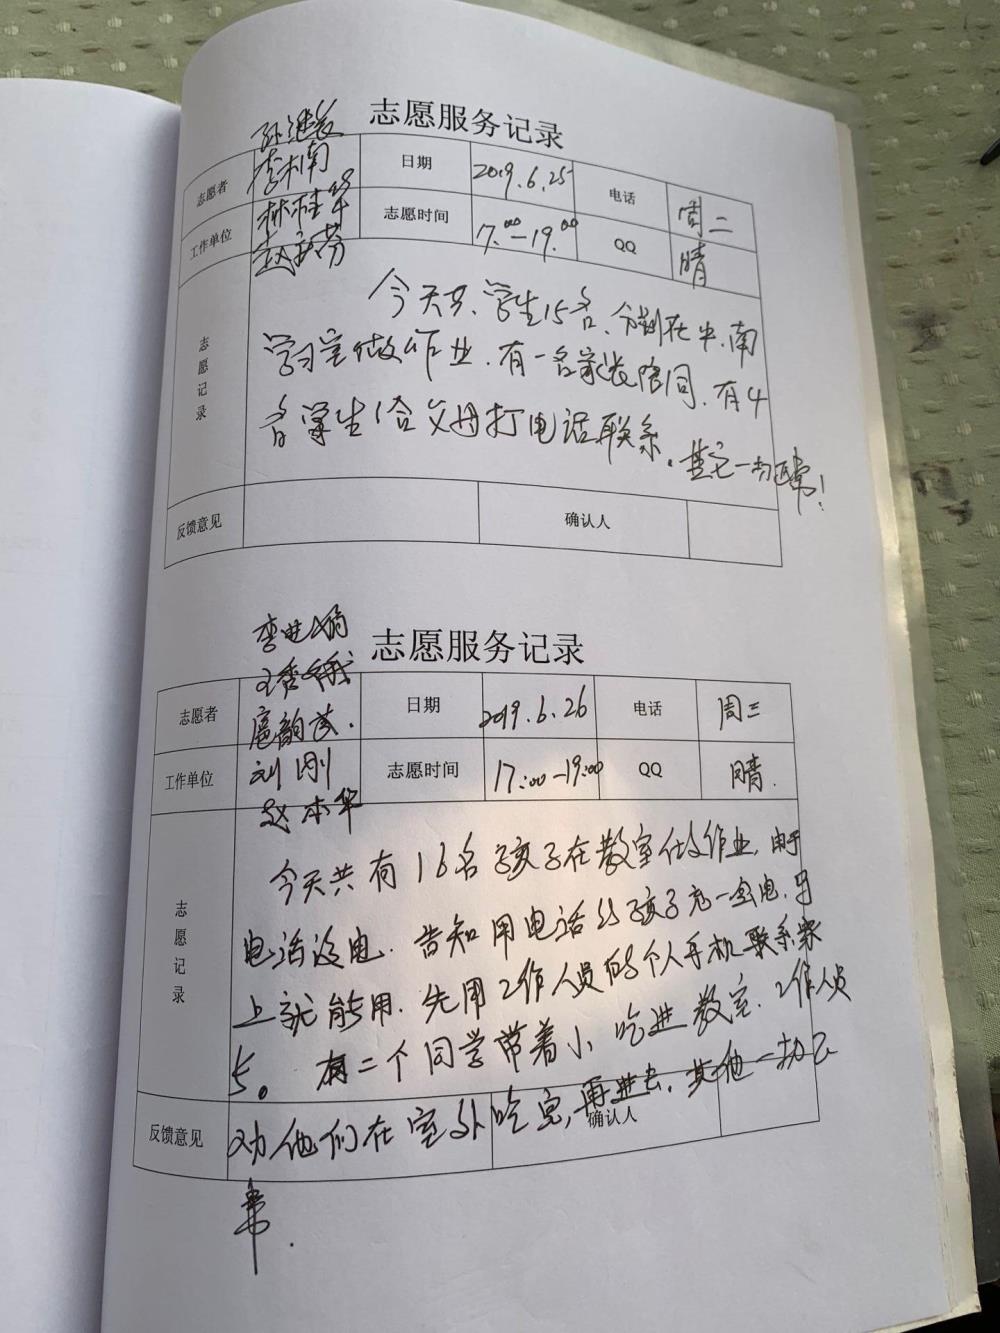 志愿服务记录
志愿者
李木南
日期
2019.6.25
电话
周二
工作单位
林桂华
志愿时间
17.00-19.00
QQ
晴
志愿记录
今天共、学生15名、分别在中、南
学习室做作业、有一名家长陪同、有4
名学生给父母打电话联系。其它一切正常！
反馈意见
确认人
志愿服务记录
志愿者
日期
2019.6.26
电话
周三
工作单位
刘刚
赵本华
志愿时间
17:00-19:00
QQ
晴.
志愿记录
今天共有16名孩子在教室做作业，由于
电话没电、告知用电话的孩子充一会电、马
上就能用、先用工作人员的个人手机联系家
长。有二个同学带着小吃进教室、工作人员
劝他们在室外吃完，再进去，其他一切正
常.
反馈意见
确认人